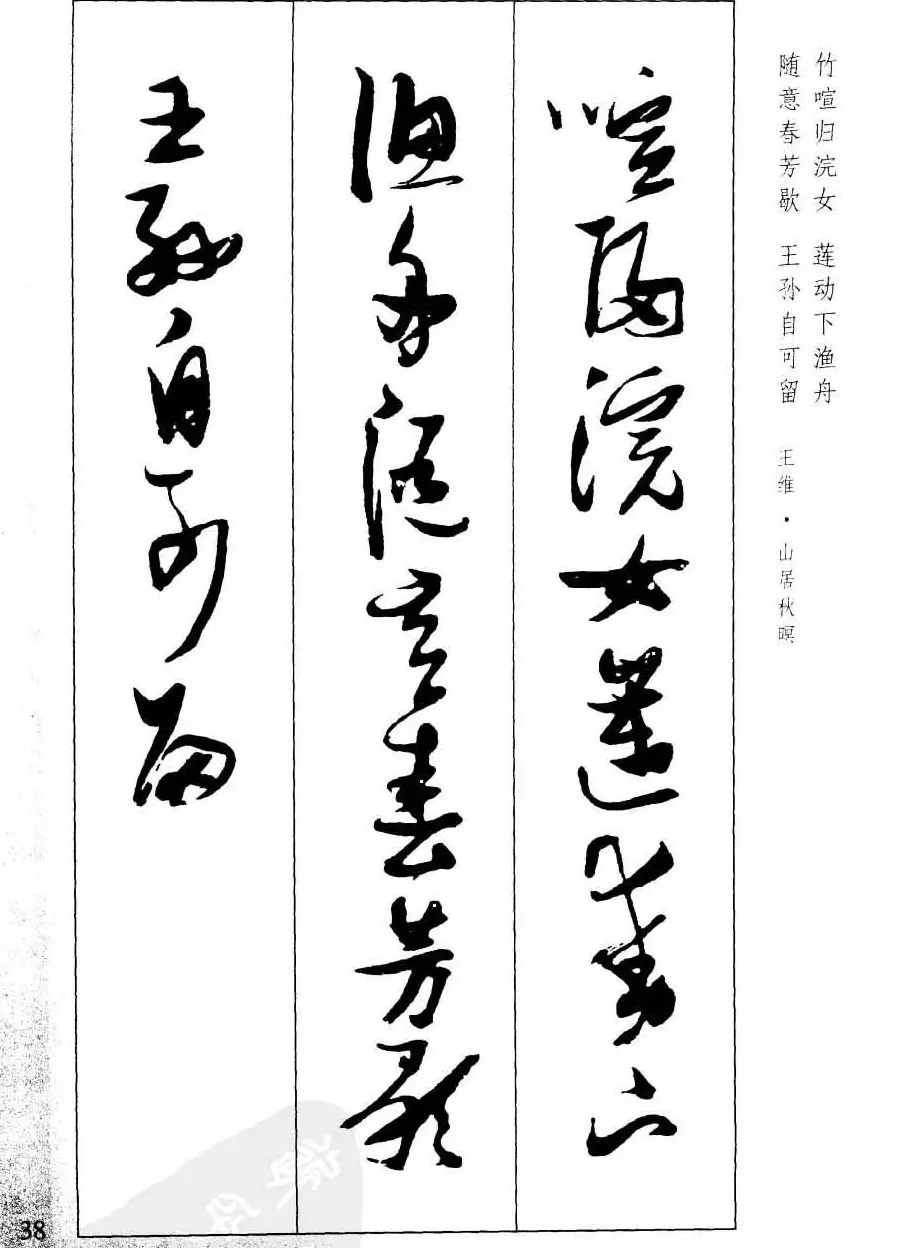 竹喧归浣女 莲动下渔舟
随意春芳歇 王孙自可留
王维·山居秋暝
喧歸浣女蓮動下
漁舟隨意春芳歇
王孫自可留
38